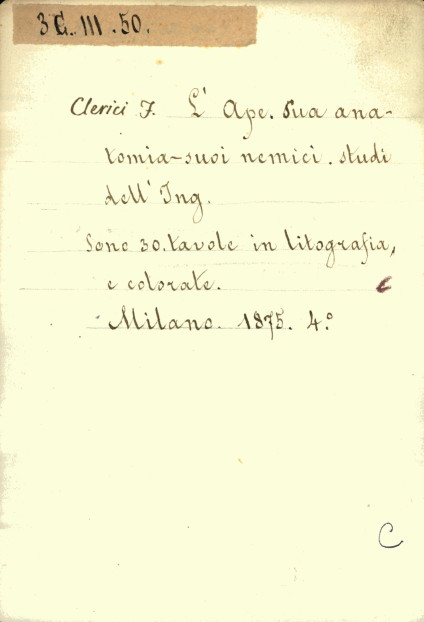 3G. III. 50.
Clerici F. L' Ape. Sua ana-
tomia-suoi nemici. studi
dell' Ing.
Sono 30. tavole in litografia,
e colorate.
Milano. 1875. 4.°
C